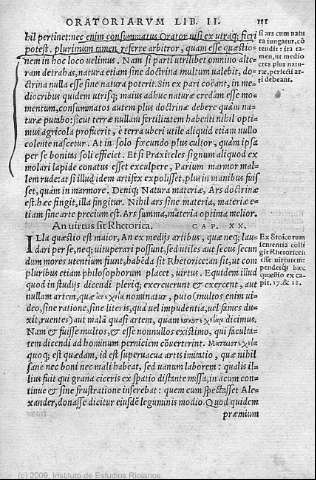 ORATORIARVM LIB. II.
hil pertinet: nec enim consummatus Orator nisi ex utraq; fieri
potest, plurimum tamen referre arbitror, quam esse quæstio-
nem in hoc loco uelimus. Nam si parti utrilibet omnino alte-
ram detrahas, natura etiam sine doctrina multum ualebit, do-
ctrina nulla esse sine natura poterit. Sin ex pari coëant, in me-
diocribus quidem utrisq; maius adhuc naturæ credam esse mo-
mentum, consummatos autem plus doctrinæ debere quàm na-
turæ puto: sicut terræ nullam fertilitatem habenti nihil opti-
mus agricola profuerit, è terra uberi utile aliquid etiam nullo
colente nascetur. At in solo fœcundo plus cultor, quàm ipsa
per se bonitas soli efficiet. Et si Praxiteles signum aliquod ex
molari lapide conatus esset exculpere, Parium marmor mal-
lem rude: at si illud idem artifex expolisset, plus in manibus fuis
set, quàm in marmore. Deniq; Natura materia, Ars doctrina
est: hæc fingit, illa fingitur. Nihil ars sine materia, materiæ e-
tiam sine arte precium est. Ars summa, materia optima melior.
An uirtus sit Rhetorica. CAP. XX.
ILla quæstio est maior, An ex medijs artibus, quæ neq; lau-
dari per se, neq; uituperari possunt, sed utiles aut secus secun
dum mores utentium fiunt, habēda sit Rhetorice: an sit, ut com
pluribus etiam philosophorum placet, uirtus. Equidem illud
quod in studijs dicendi pleriq; exercuerunt & exercent, aut
nullam artem, quæ nominatur, puto (multos enim ui-
deo, sine ratione, sine literis, quà uel impudentia, uel fames du-
xit, ruentes) aut malā quasi artem, quam dicimus.
Nam & fuisse multos, & esse nonnullos existimo, qui faculta-
tem dicendi ad hominum perniciem cōuerterint.
quoq; est quædam, id est superuacua artis imitatio, quæ nihil
sanè nec boni nec mali habeat, sed uanum laborem: qualis il-
lius fuit qui grana ciceris ex spatio distante missa, in acum conti-
nue & sine frustratione inserebat: quem cum spectasset Ale-
xander, donasse dicitur eiusdē leguminis modio. Quod quidem
præmium
si ars cum natu
ra iungatur, cō
tendit: sed ita
men, ut medio
cris plus natu-
ræ, perfecti ar-
ti debeant.
Ex Stoicorum
sententia colli
git Rhetoricen
esse uirtutem: